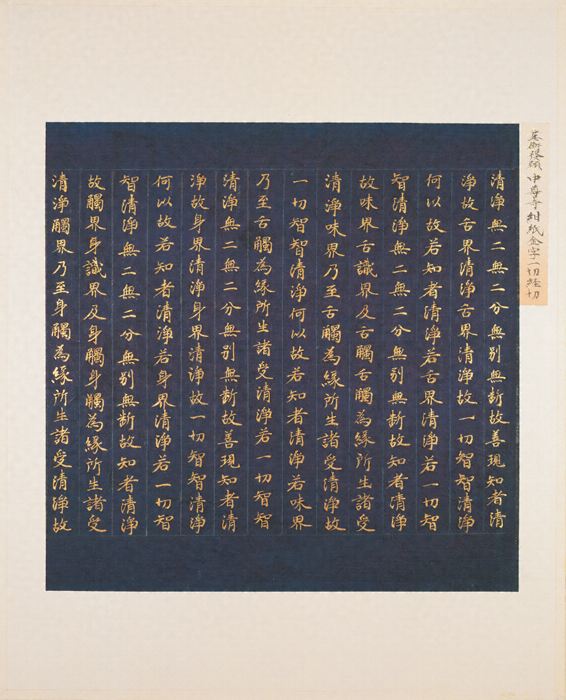 基衡發願 中尊寺紺紙金字一切経切
清淨無二無二分無別無斷故善現知者清
淨故舌界清淨舌界清淨故一切智智清淨
何以故若知者清淨若舌界清淨若一切智
智清淨無二無二分無別無斷故知者清淨
故味界舌識界及舌觸舌觸為緣所生諸受
清淨味界乃至舌觸為緣所生諸受清淨故
一切智智清淨何以故若知者清淨若味界
乃至舌觸為緣所生諸受清淨若一切智智
清淨無二無二分無別無斷故善現知者清
淨故身界清淨身界清淨故一切智智清淨
何以故若知者清淨若身界清淨若一切智
智清淨無二無二分無別無斷故知者清淨
故觸界身識界及身觸身觸為緣所生諸受
清淨觸界乃至身觸為緣所生諸受清淨故